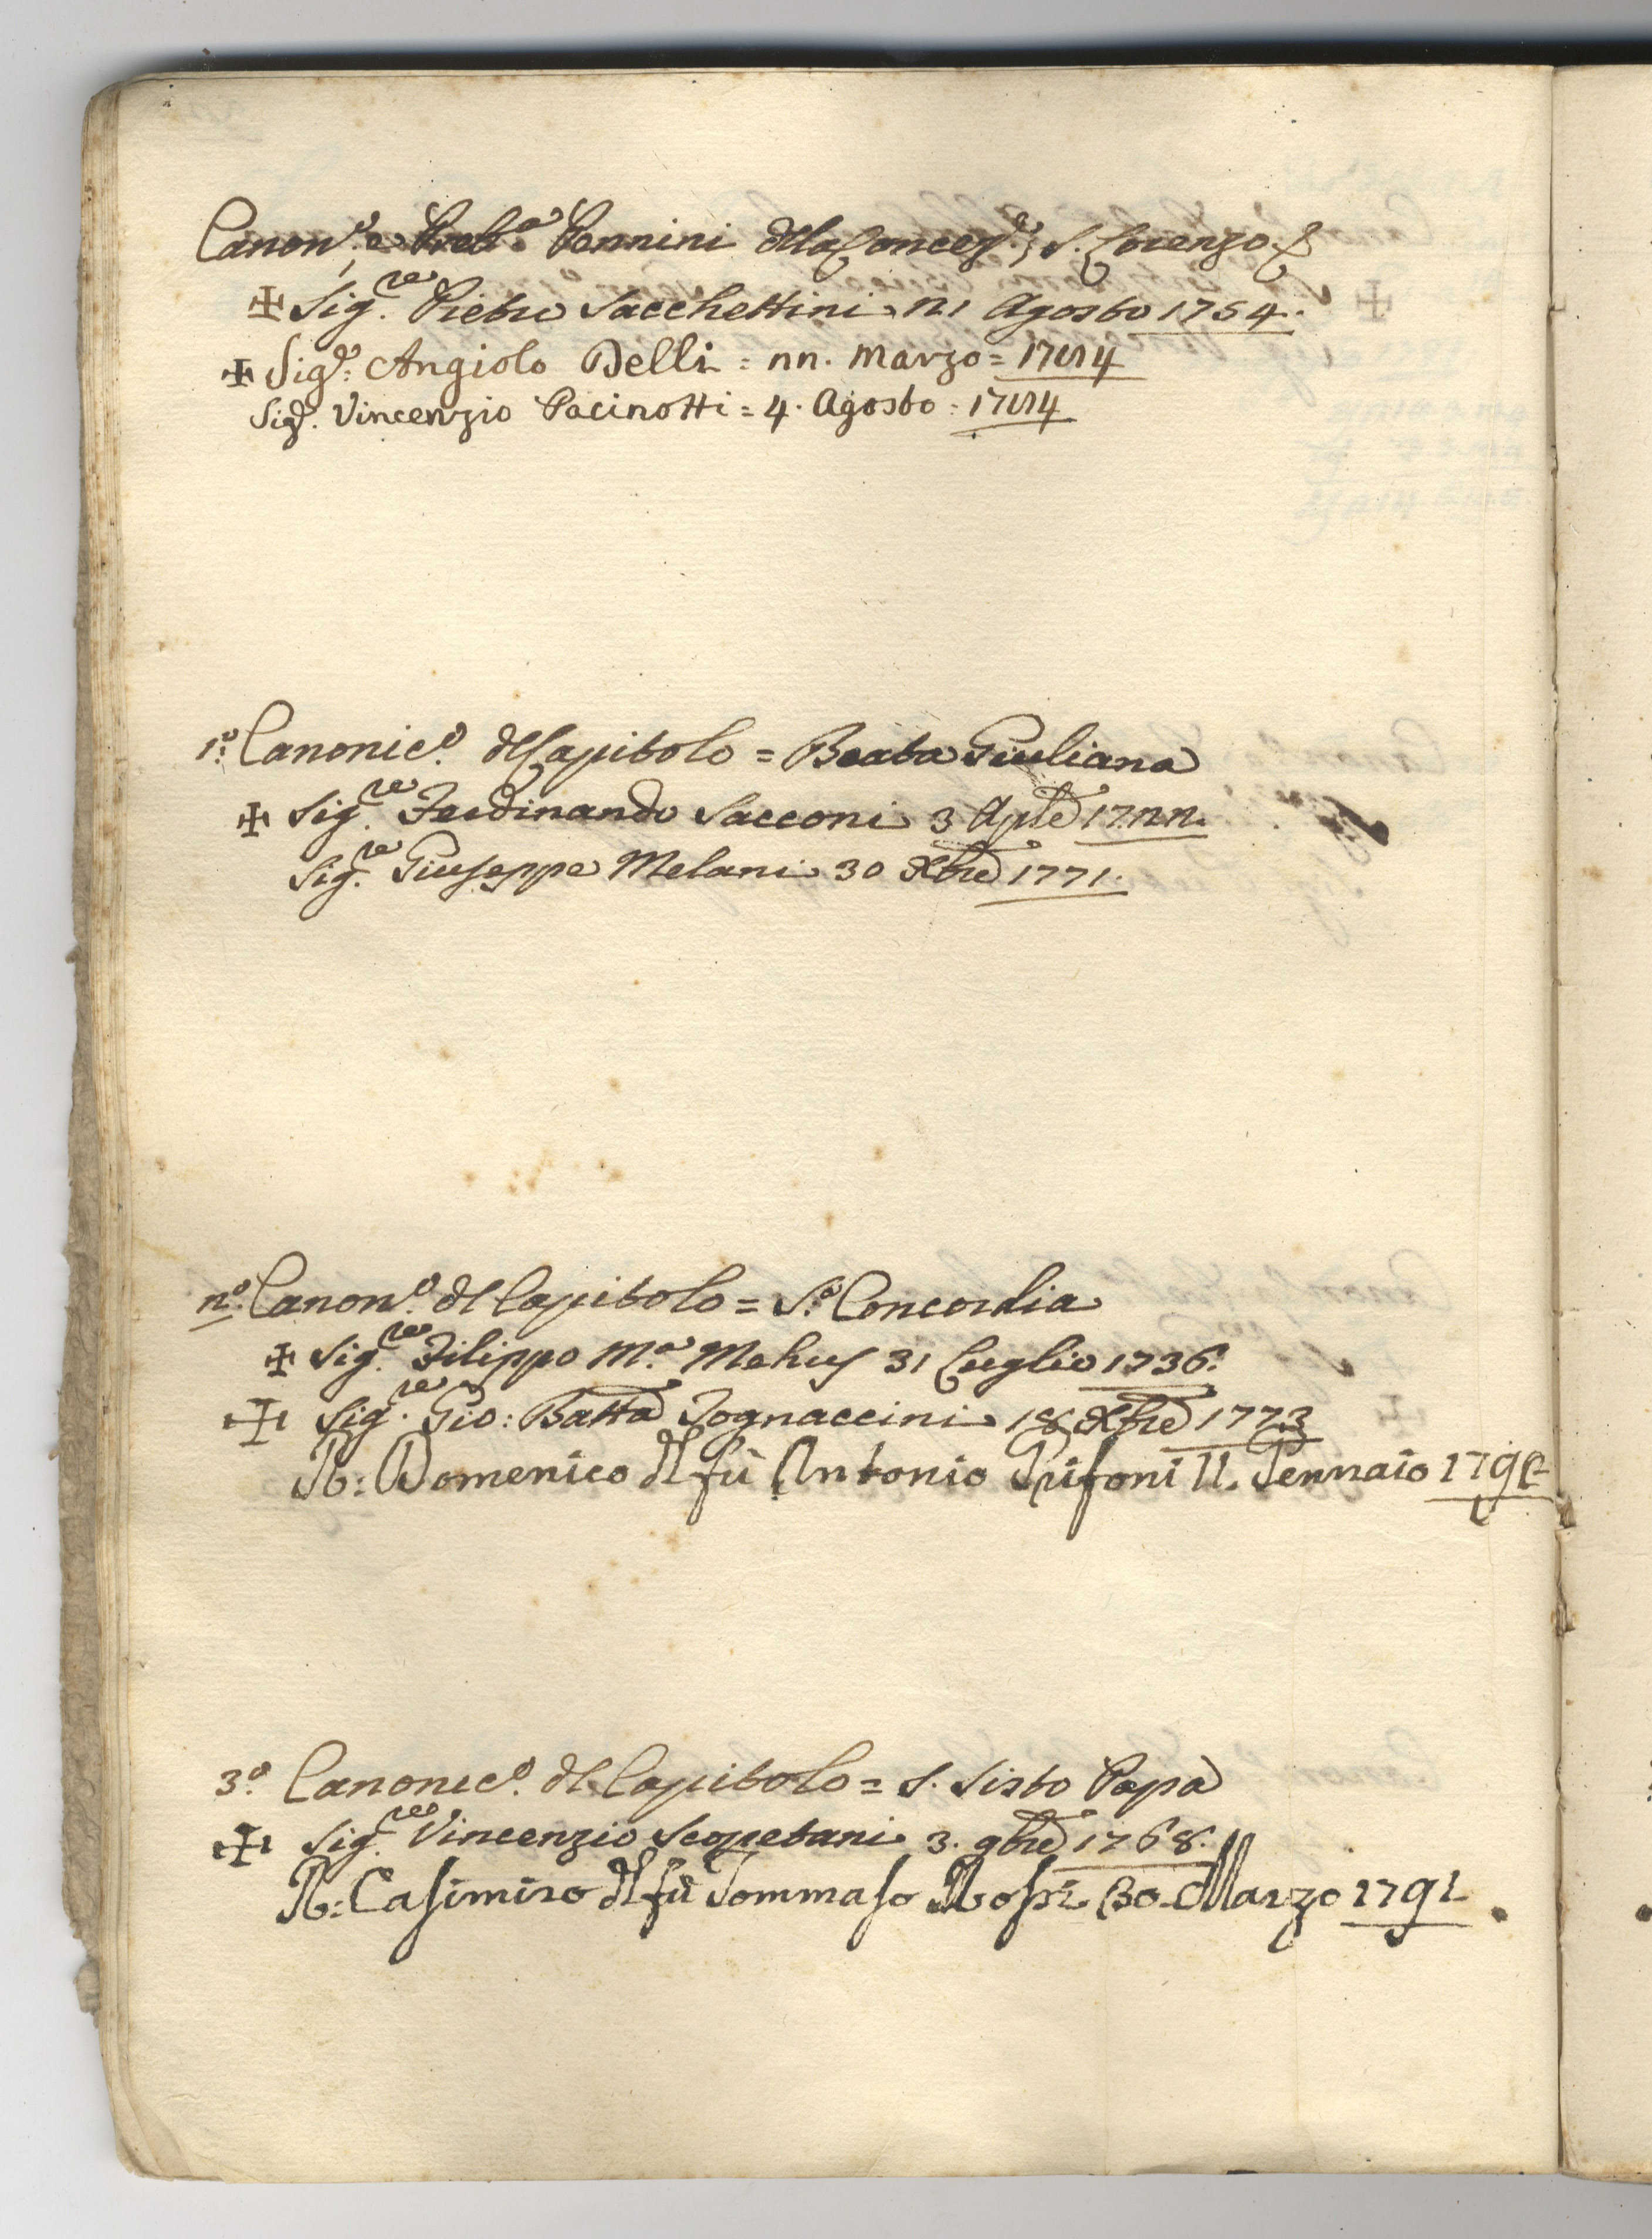 Canon.º e Preb.ª Pennini della Concez.e; S. Lorenzo
✠ Sig.re Pietro Sacchettini 21 Agosto 1754.
✠ Sig.e Angiolo Delli = 22. Marzo = 1784
Sig.e Vincenzio Pacinotti = 4. Agosto = 1784
1.º Canonic.º del Capitolo = Beata Giuliana
✠ Sig.re Ferdinando Sacconi 3 Aple 1722.
Sig.re Giuseppe Melani 30 Xbre 1771.
2.º Canon.º del Capitolo = S.ª Concordia
✠ Sig.re Filippo M.ª Mehus 31 Luglio 1736.
✠ Sig.re Gio: Batta Fognaccini 18 Xbre 1773
R: Domenico del fù Antonio Grifoni 11. Gennaio
3.º Canonic.º del Capitolo = S. Sisto Papa
✠ Sig.re Vincenzio Scopetani 3. 9bre 1768.
R: Casimiro del fù Tommaso Rossi 30 Marzo 1791